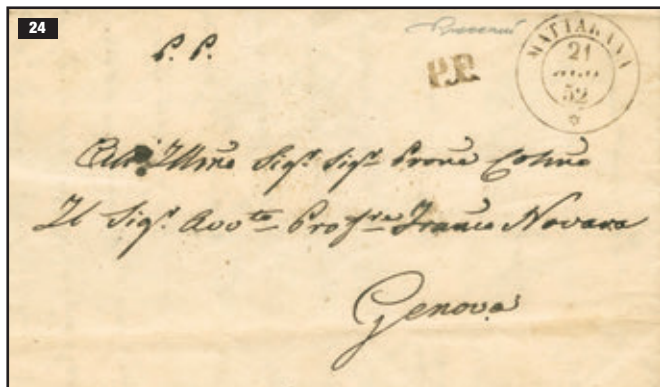 24
P. P.
P.P.
MATTARANA
21
52
Sig.r Sig.r Prone Colmo
Il Sig.r Avv.to Prof.re Franco Novara
Genova